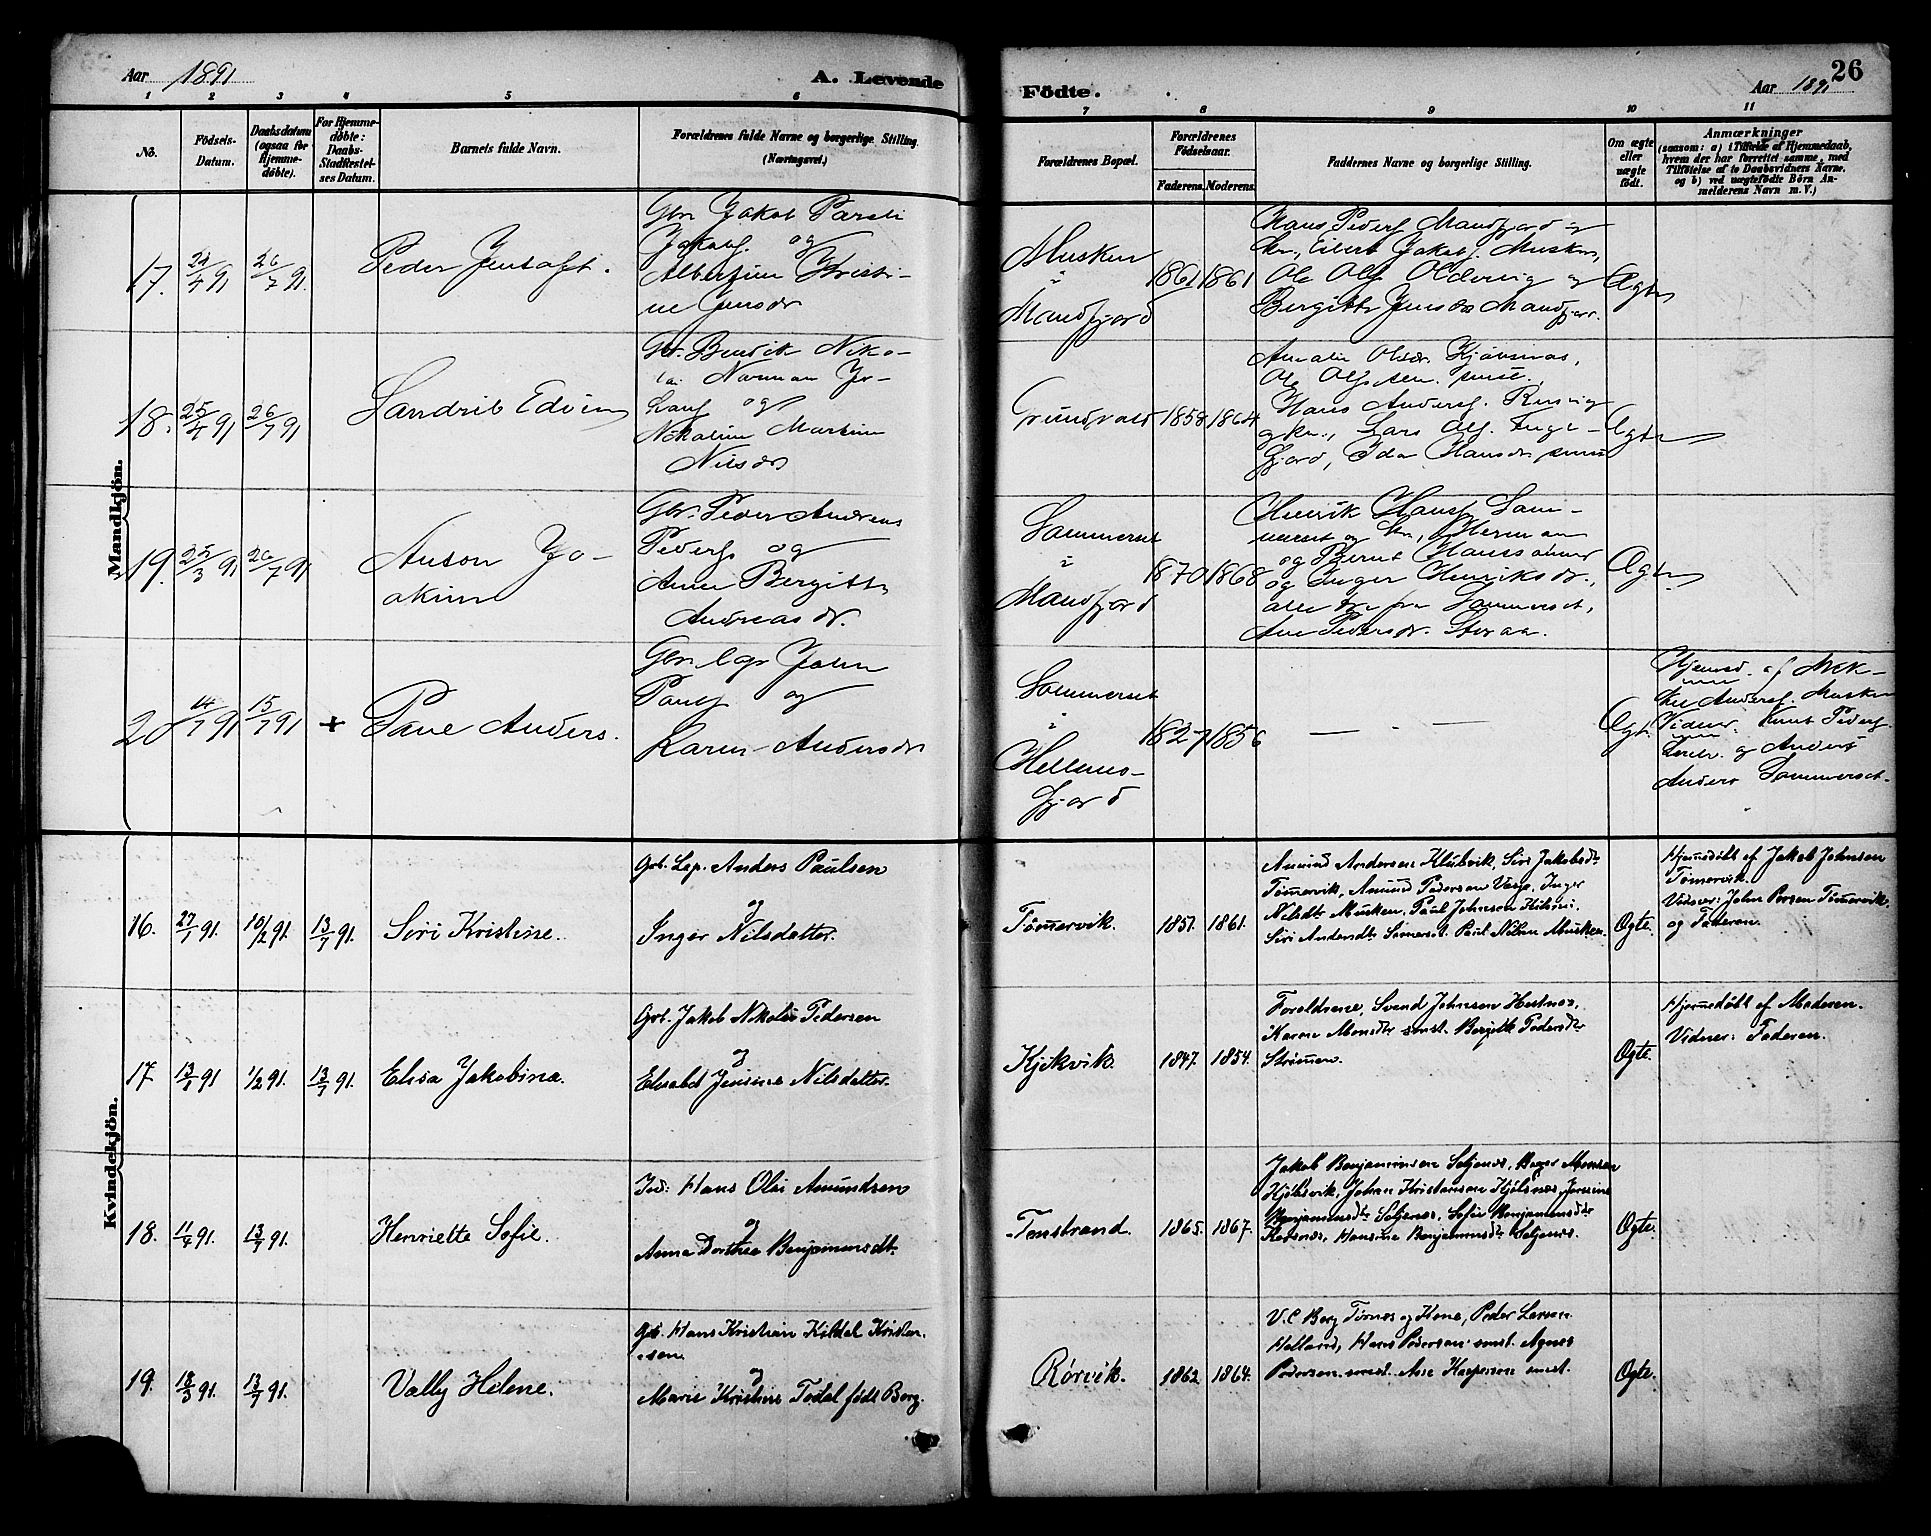 Aar 1891
A. Levende
Fødte.
Aar 1891
26
1 2 3 4 5 6 7 8 9 10 11
No.
Fødsels-
Datum.
Daabsdatum
(ogsaa for
Hjemme-
døbte).
For Hjemme-
døbte:
Daabs-
Stadfæstel-
ses Datum.
Barnets fulde Navn.
Forældrenes fulde Navne og borgerlige Stilling.
(Næringsvei.)
Forældrenes Bopæl.
Forældrenes
Fødselsaar.
Faderens. Moderens.
Faddernes Navne og borgerlige Stilling.
Om ægte
eller
uægte
født.
Anmærkninger
(saasom: a) i Tilfælde af Hjemmedaab,
hvem der har forrettet samme, med
Tilføielse af to Daabsvidners Navne.
og b) ved uægtefødte Børn An-
melderens Navn m. V.)
Mandkjön.
17. 91 26/7 91.
Peder Jentoft.
Gbr. Jakob
Jakobs. og
Albertine Kristi-
ne Jensdr
Musken
i
Mandfjord
1861 1861
Hans Peders. Mandfjord og
Kn, Eilert Jakobs. Musken,
Ole Ols. Oldervig og
Bergitte Jensdr Mandfjord.
Ægte
18. 25/4 91 26/7 91
Sandrik Edvin
Gbr. Bendik Niko-
lai Norman Jo-
og
Nikoline Martine
Nilsdr
Grundvald
1858 1864
Amalie Olsdr. Kjøbsnæs,
Ole Ols.
Hans Anders. Rusvig
og Kn., Lars Ols. Tuge-
fjord, Ida Hansdr.
Ægte
19. 25/3 91 26/7 91
Anton Jo-
akim
Gbr. Peder Andreas
Peders. og
Anne Bergitte
Andreasdr.
Sommerset
i
Mandfjord
1870 1868
Henrik Hans. Som-
merset og Kn, Herman
og Bernt Hanssønner
og Inger Henriksdr.,
alle fra Sommerset,
Ane Pedersdr. Storaa.
Ægte
20 14/7 91 15/7 91 +
Paul Anders.
Gbr. Lap John
Pauls. og
Karen Andersdr
Sommerset
i
Hellems-
fjord
1827 1856
— —
Ægt.
Hjemmed. af Mik-
kel Anders. Musken
Vidner: Knut Peders.
og Anders
Anders. Sommerset.
Kvindekjön.
16. 27/1 91. 10/2 91. 13/7 91.
Siri Kristine.
Grb. Lap. Anders Paulsen
og
Inger Nilsdatter.
Tømervik.
1851. 1861.
Amund Andersen Klubvik, Siri Jakobsdtr
Tømervik, Amund Pedersen Inger
Nilsdtr Musken. Paul Johnsen
Siri Andersdtr Sommerset. Paul Nilsen Musken.
Ægte.
Hjemedøbt af Jakob Johnsen
Tømervik.
Vidner: John Persen Tømervik.
og Faderen.
17. 13/1 91 1/2 91. 13/7 91.
Elisa Jakobina.
Grb. Jakob Nikolai Pedersen
og
Elisabet Jensine Nilsdatter.
Kjikvik.
1847. 1854.
Foreldrene, Svend Johnsen Hestnes,
Karen Monsdtr smst. Bergith Pedersdtr
Strømen.
Ægte.
Hjemmedøbt af Moderen.
Vidner: Faderen.
18. 11/4 91. 13/7 91.
Henriette Sofie.
Ind: Hans Olai Amundsen
og
Anna Dorthea Benjaminsdtr.
Tømstrand.
1865. 1867.
Jakob Benjaminsen Seljenes, Birger Monsen
Kjøbsvik, Johan Kristiansen Kjølsnes, Jensine
Benjaminsdtr Seljenes, Sofie Benjaminsdtr
Hansine Benjaminsdtr Seljenes.
Ægte.
19. 18/3 91. 13/7 91.
Vally Helene.
Grb. Hans Kristian Kildal Kristen-
sen.
og
Marie Kristine Todal født Berg.
Rørvik.
1862 1864.
V.C Berg Tørnes og Kone, Peder Larsen
Helland, Hans Pedersen smst. Agnes
Pedersen smst. Ane Kaspersen smst.
Ægte.